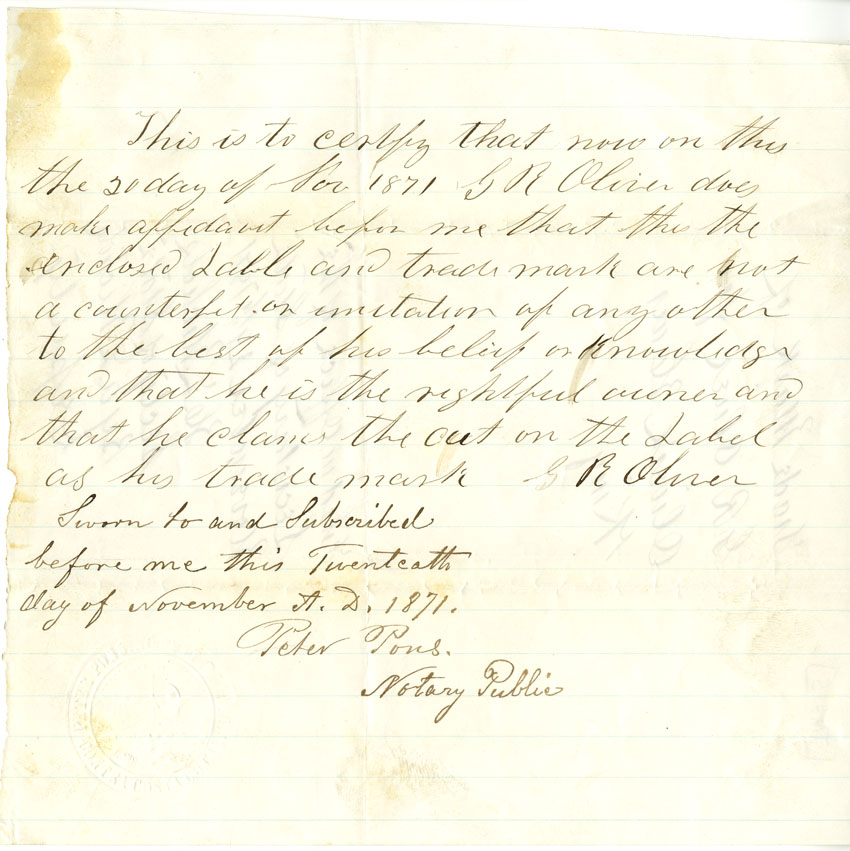 This is to certify that now on this
the 20 day of Nov 1871 G R Oliver does
make affidavit befor me that this the
enclosed Lable and trade mark are not
a counterfit or imitation of any other
to the best of his belief or knowledge
and that he is the rightful owner and
that he claims the cut on the Label
as his trade mark G R Oliver
Sworn to and Subscribed
before me this Twenteath
day of November A. D. 1871.
Peter Pons.
Notary Public